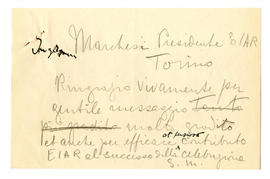 Marchesi Presidente EIAR
Torino
Ringrazio vivamente per
gentile messaggio tanto
più gradito molto gradito
et anche per efficace contributo
EIAR al successo della celebrazione
S. M.